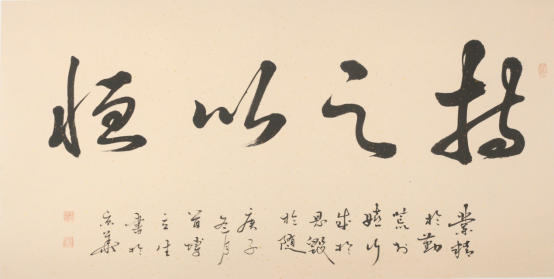 持之以恒
業精
於勤
荒於
嬉行
成於
思毀
於隨
庚子
冬月
立生
書於
京華